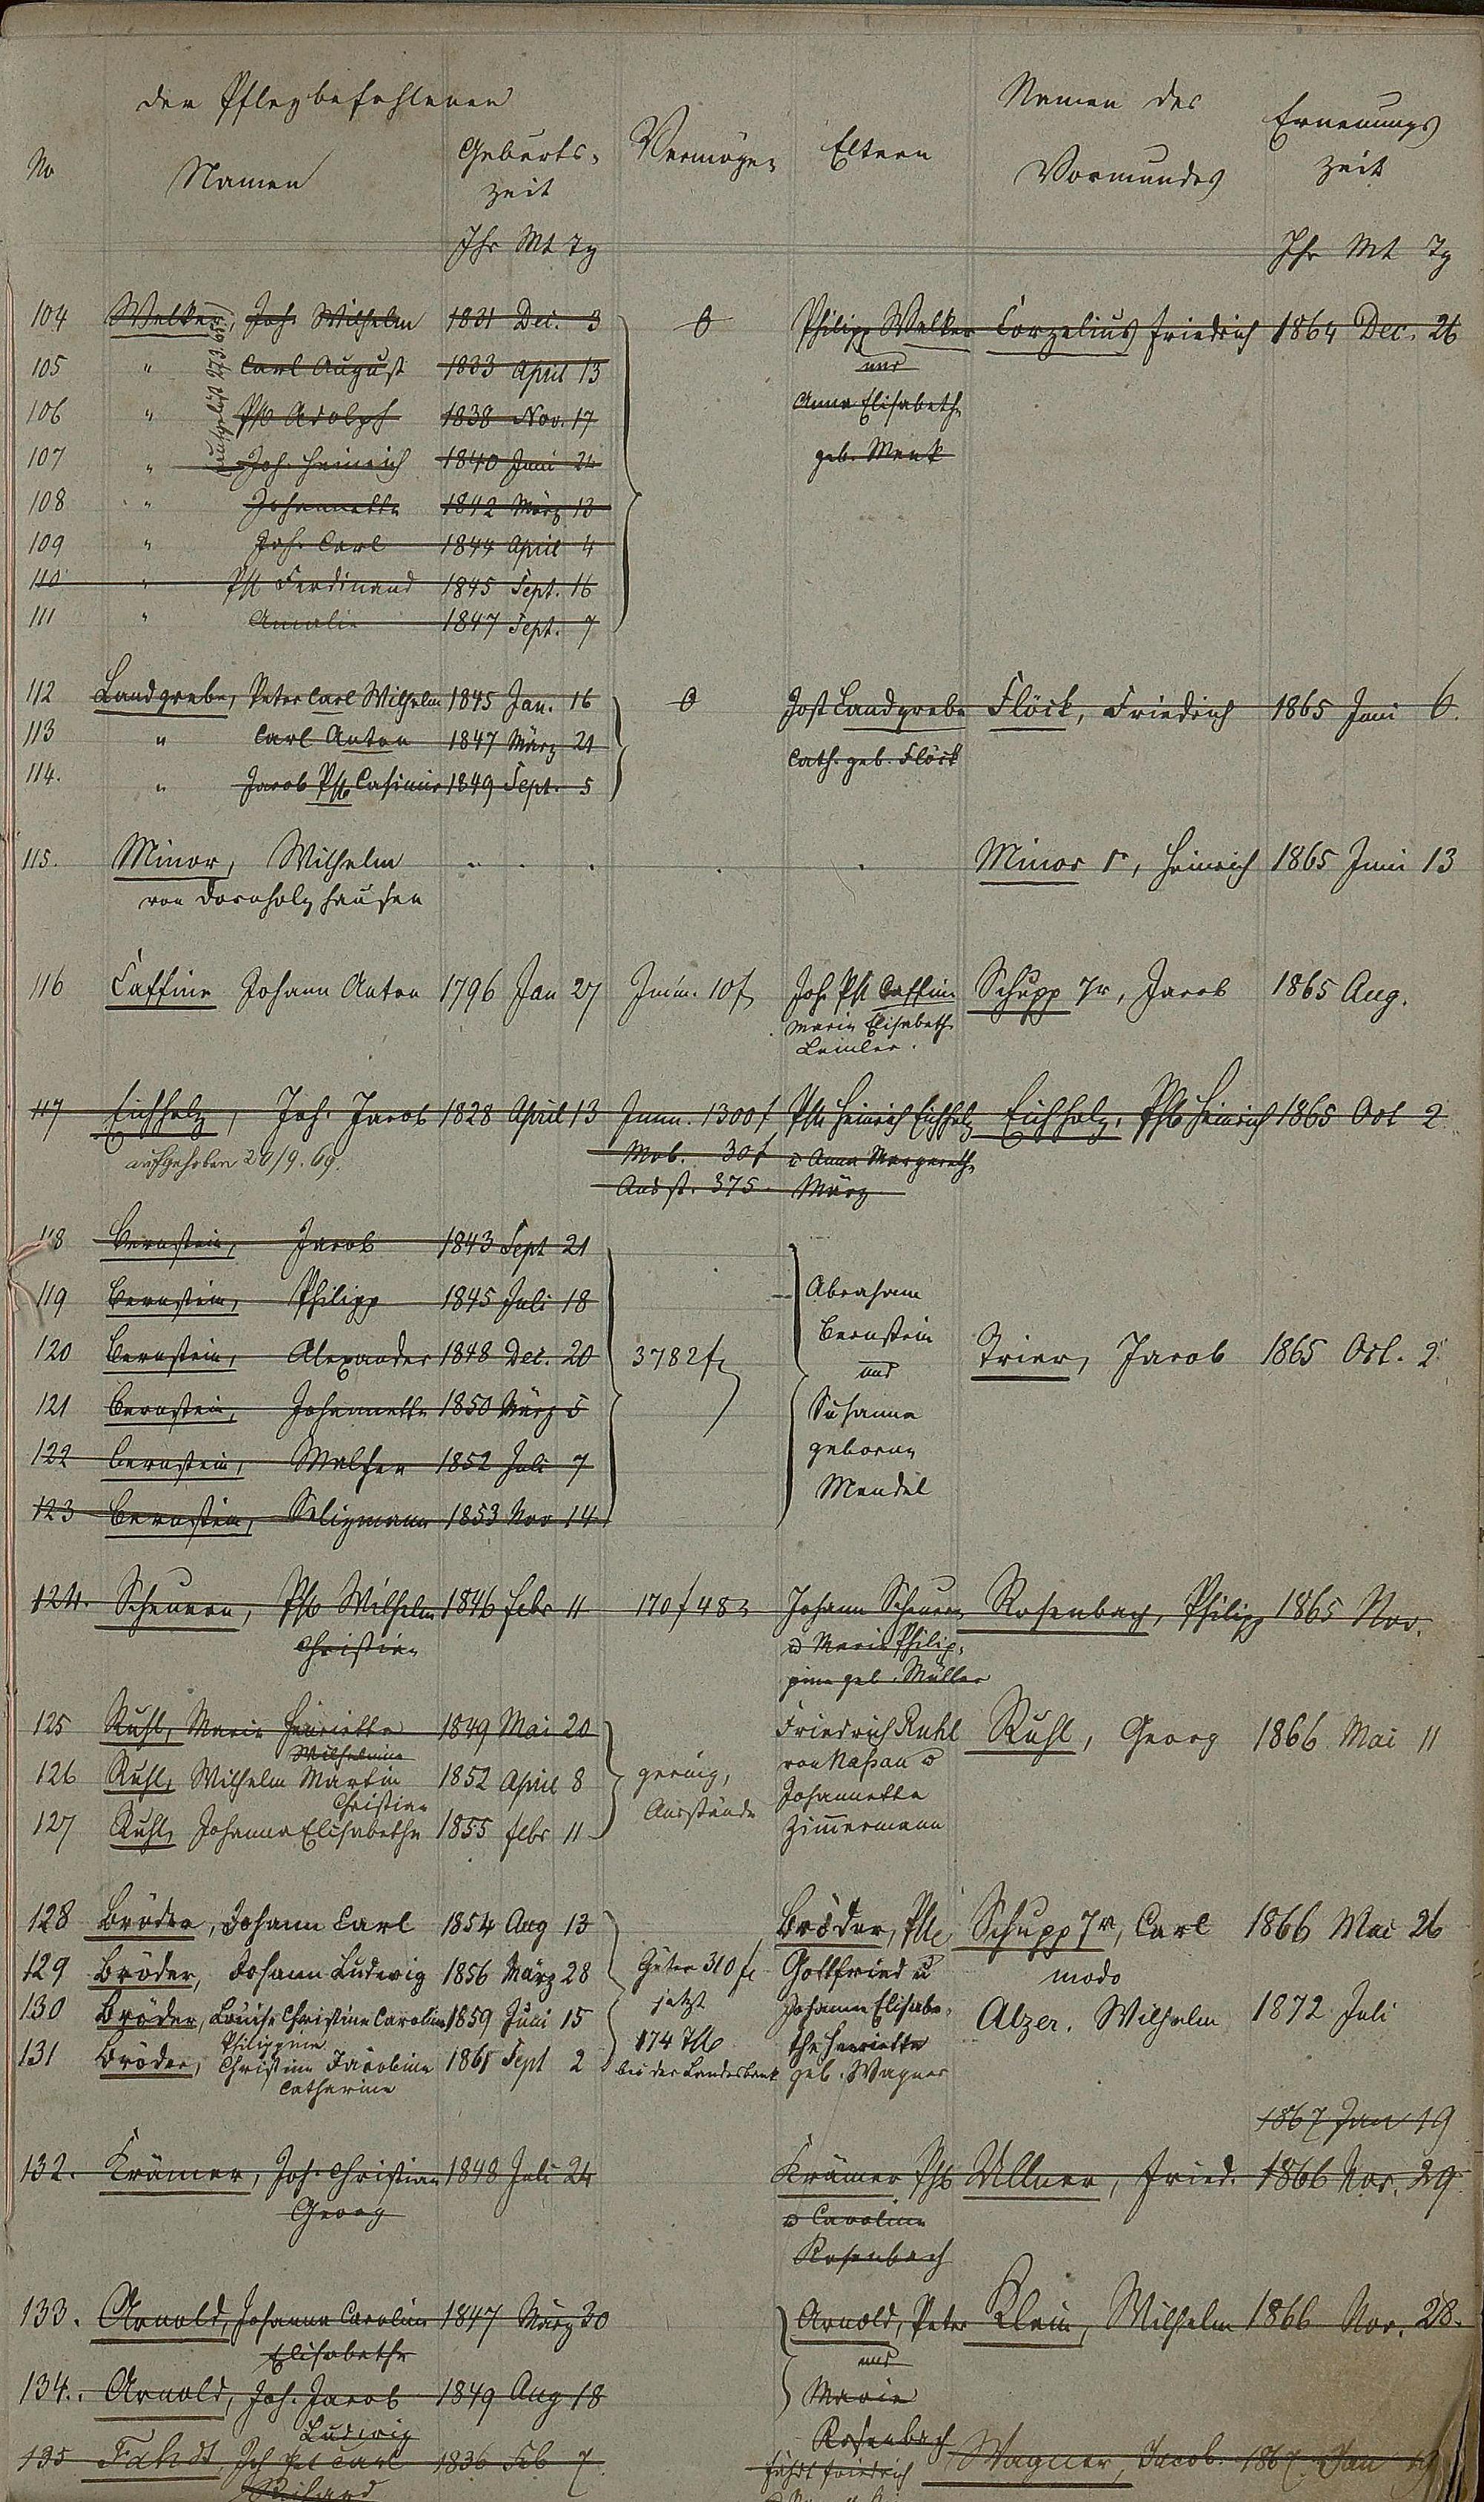 der Pflegbefohlenen
Namen des
No Namen Geburts- Vermögen Eltern Vormundes Ernennungs
zeit zeit
Jhr Mt Tg Jhr Mt Tg
104 Welker, Joh. Wilhelm 1831 Dec. 3 0 Philipp Welker Corzelius Friedrich 1864 Dec. 26
105 " Carl August 1833 April 13 und
106 " Phil Adolph 1838 Nov. 17 Anna Elisabeth
107 " Joh. Heinrich 1840 Juni 24 geb. Menk
108 " Johannette 1842 März 13
109 " Joh. Carl 1844 April 4
110 " Phil Ferdinand 1845 Sept. 16
111 " Amalie 1847 Sept. 7
112 Landgrebe, Peter Carl Wilhelm 1845 Jan. 16 0 Jost Landgrebe Flöck, Friedrich 1865 Juni 6.
113 " Carl Anton 1847 März 21 Cath. geb. Flöck
114. " Jacob Phil Casimir 1849 Sept. 5
115. Minor, Wilhelm Minor, Heinrich 1865 Juni 13
von Dornholzhausen
116 Caffine Johann Anton 1796 Jan 27 Imm. 10 f Joh. Phil Caffine Schupp Jr, Jacob 1865 Aug.
Marie Elisabeth
117 Eichholz, Joh. Jacob 1828 April 13 Imm. 1300 f Phil Heinrich Eichholz Eichholz, Phil Heinrich 1865 Oct 2
aufgehoben 20/9.69. Mob. 30 f u Anna Margarethe
Ausst. 375 März
118 Bernstein, Jacob 1843 Sept 21
119 Bernstein, Philipp 1845 Juli 18 Abraham
120 Bernstein, Alexander 1848 Dec. 20 3782 f Bernstein Trier, Jacob 1865 Oct. 2
und
121 Bernstein, Johannette 1850 März 5 Susanna
122 Bernstein, 1852 Juli 7 geborne
123 Bernstein, Seligmann 1853 Nov 14 Mendel
124. Scheuern, Phil Wilhelm 1846 Febr 11 170 f 48 Johann Scheuern Rosenbach, Philipp 1865 Nov.
Christian u Marie Philip-
pine geb. Müller
125 Ruhl, Marie Henriette 1849 Mai 20 Friedrich Ruhl Ruhl, Georg 1866 Mai 11
Wilhelmine von Naßau u
126 Ruhl, Wilhelm Martin 1852 April 8 gering, Johannette
Christian Ausstände
127 Ruhl, Johanna Elisabethe 1855 Febr 11 Zimmermann
128 Bröder, Johann Carl 1854 Aug 13 Bröder, Phil Schupp Jr, Carl 1866 Mai 26
129 Bröder, Johann Ludwig 1856 März 28 Güter 310 f Gottfried u modo
130 Bröder, Louise Christine Caroline 1859 Juni 15 jetzt Johanne Elisabe- Alzer. Wilhelm 1872 Juli
Philippine 174 Thl the Henriette
131 Bröder, Christine Jacobine 1861 Sept 2 bei der Landesbank geb. Wagner
Catharine
1867 Jan 19
132. Krämer, Joh. Christian 1848 Juli 24 Krämer Phil Ullner, Fried. 1866 Nov. 29
Georg u Caroline
Rosenbach
133. Arnold, Johanne Caroline 1847 März 30 Arnold, Peter Klein, Wilhelm 1866 Nov. 28.
Elisabethe und
134. Arnold, Joh. Jacob 1849 Aug 18 Marie
Ludwig Rosenbach
135 Fahdt, Joh Carl 1836 Feb 7. Fahdt Friedrich Wagner, Jacob 1867. Jan 19
Richard